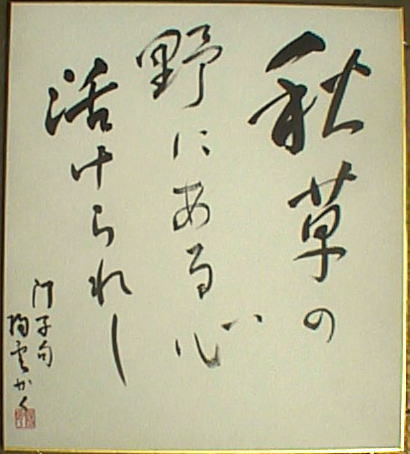 秋草の
野にある心
活けられし
子句
かく